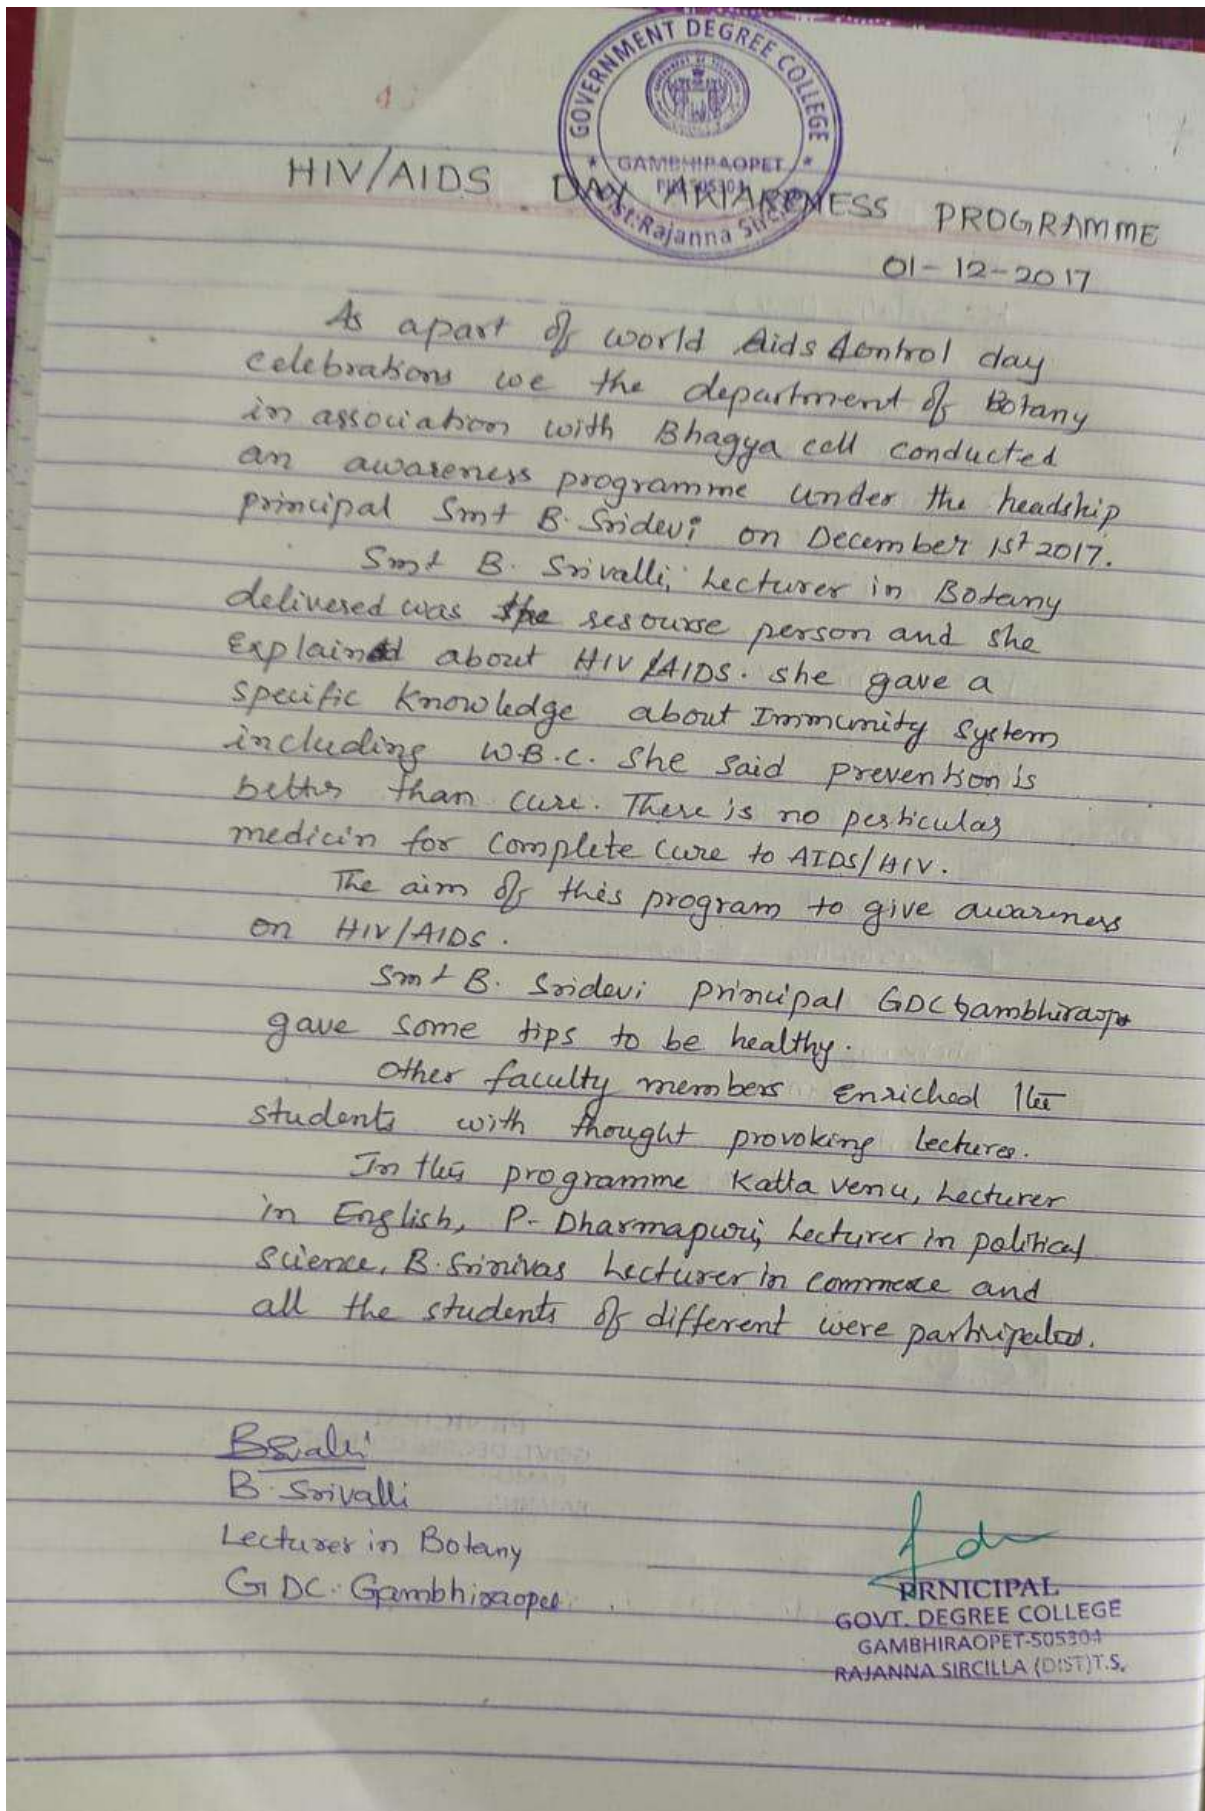 GOVERNMENT DEGREE COLLEGE
* GAMBHIRAOPET *
PIN: 505304
Dist: Rajanna Sircilla
HIV/AIDS DAY AWARENESS PROGRAMME
01-12-2017
As apart of world Aids Control day
celebrations we the department of Botany
in association with Bhagya cell conducted
an awareness programme under the headship
principal Smt B. Sridevi on December 1st 2017.
Smt B. Srivalli, Lecturer in Botany
delivered was the resourse person and she
Explained about HIV/AIDS. She gave a
specific Knowledge about Immunity System
including W.B.C. She said prevention is
better than cure. There is no perticular
medicin for complete cure to AIDS/HIV.
The aim of this program to give awareness
on HIV/AIDS.
Smt B. Sridevi principal GDC Gambhiraopet
gave some tips to be healthy.
Other faculty members enriched the
students with thought provoking lectures.
In this programme Katta Venu, Lecturer
in English, P. Dharmapuri, Lecturer in political
Science, B. Srinivas Lecturer in Commerce and
all the students of different were participated.
B. Srivalli
Lecturer in Botany
GDC. Gambhiraopet.
PRNICIPAL
GOVT. DEGREE COLLEGE
GAMBHIRAOPET-505304
RAJANNA SIRCILLA (DIST)T.S.